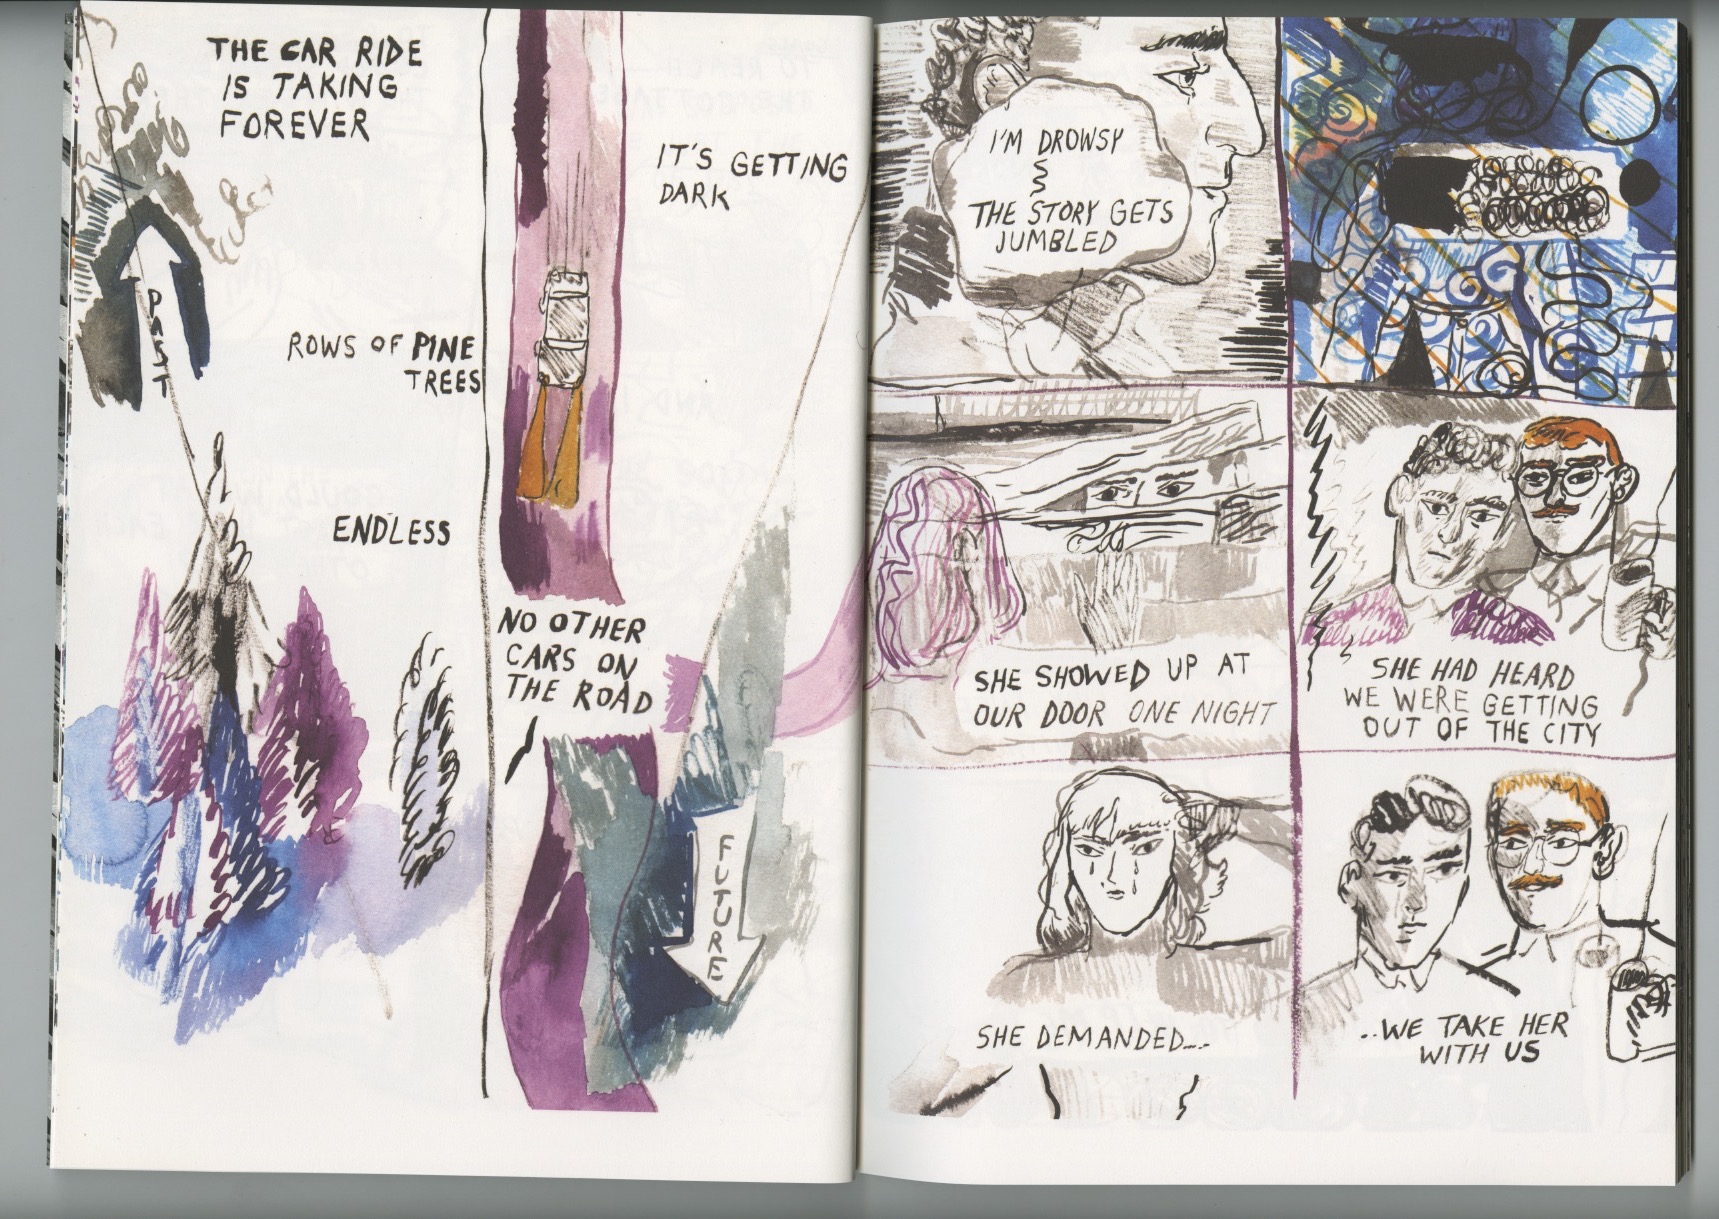 THE CAR RIDE
IS TAKING
FOREVER
PAST
ROWS OF PINE
TREES
ENDLESS
IT'S GETTING
DARK
NO OTHER
CARS ON
THE ROAD
FUTURE
I'M DROWSY
THE STORY GETS
JUMBLED
SHE SHOWED UP AT
OUR DOOR ONE NIGHT
SHE HAD HEARD
WE WERE GETTING
OUT OF THE CITY
SHE DEMANDED...
..WE TAKE HER
WITH US